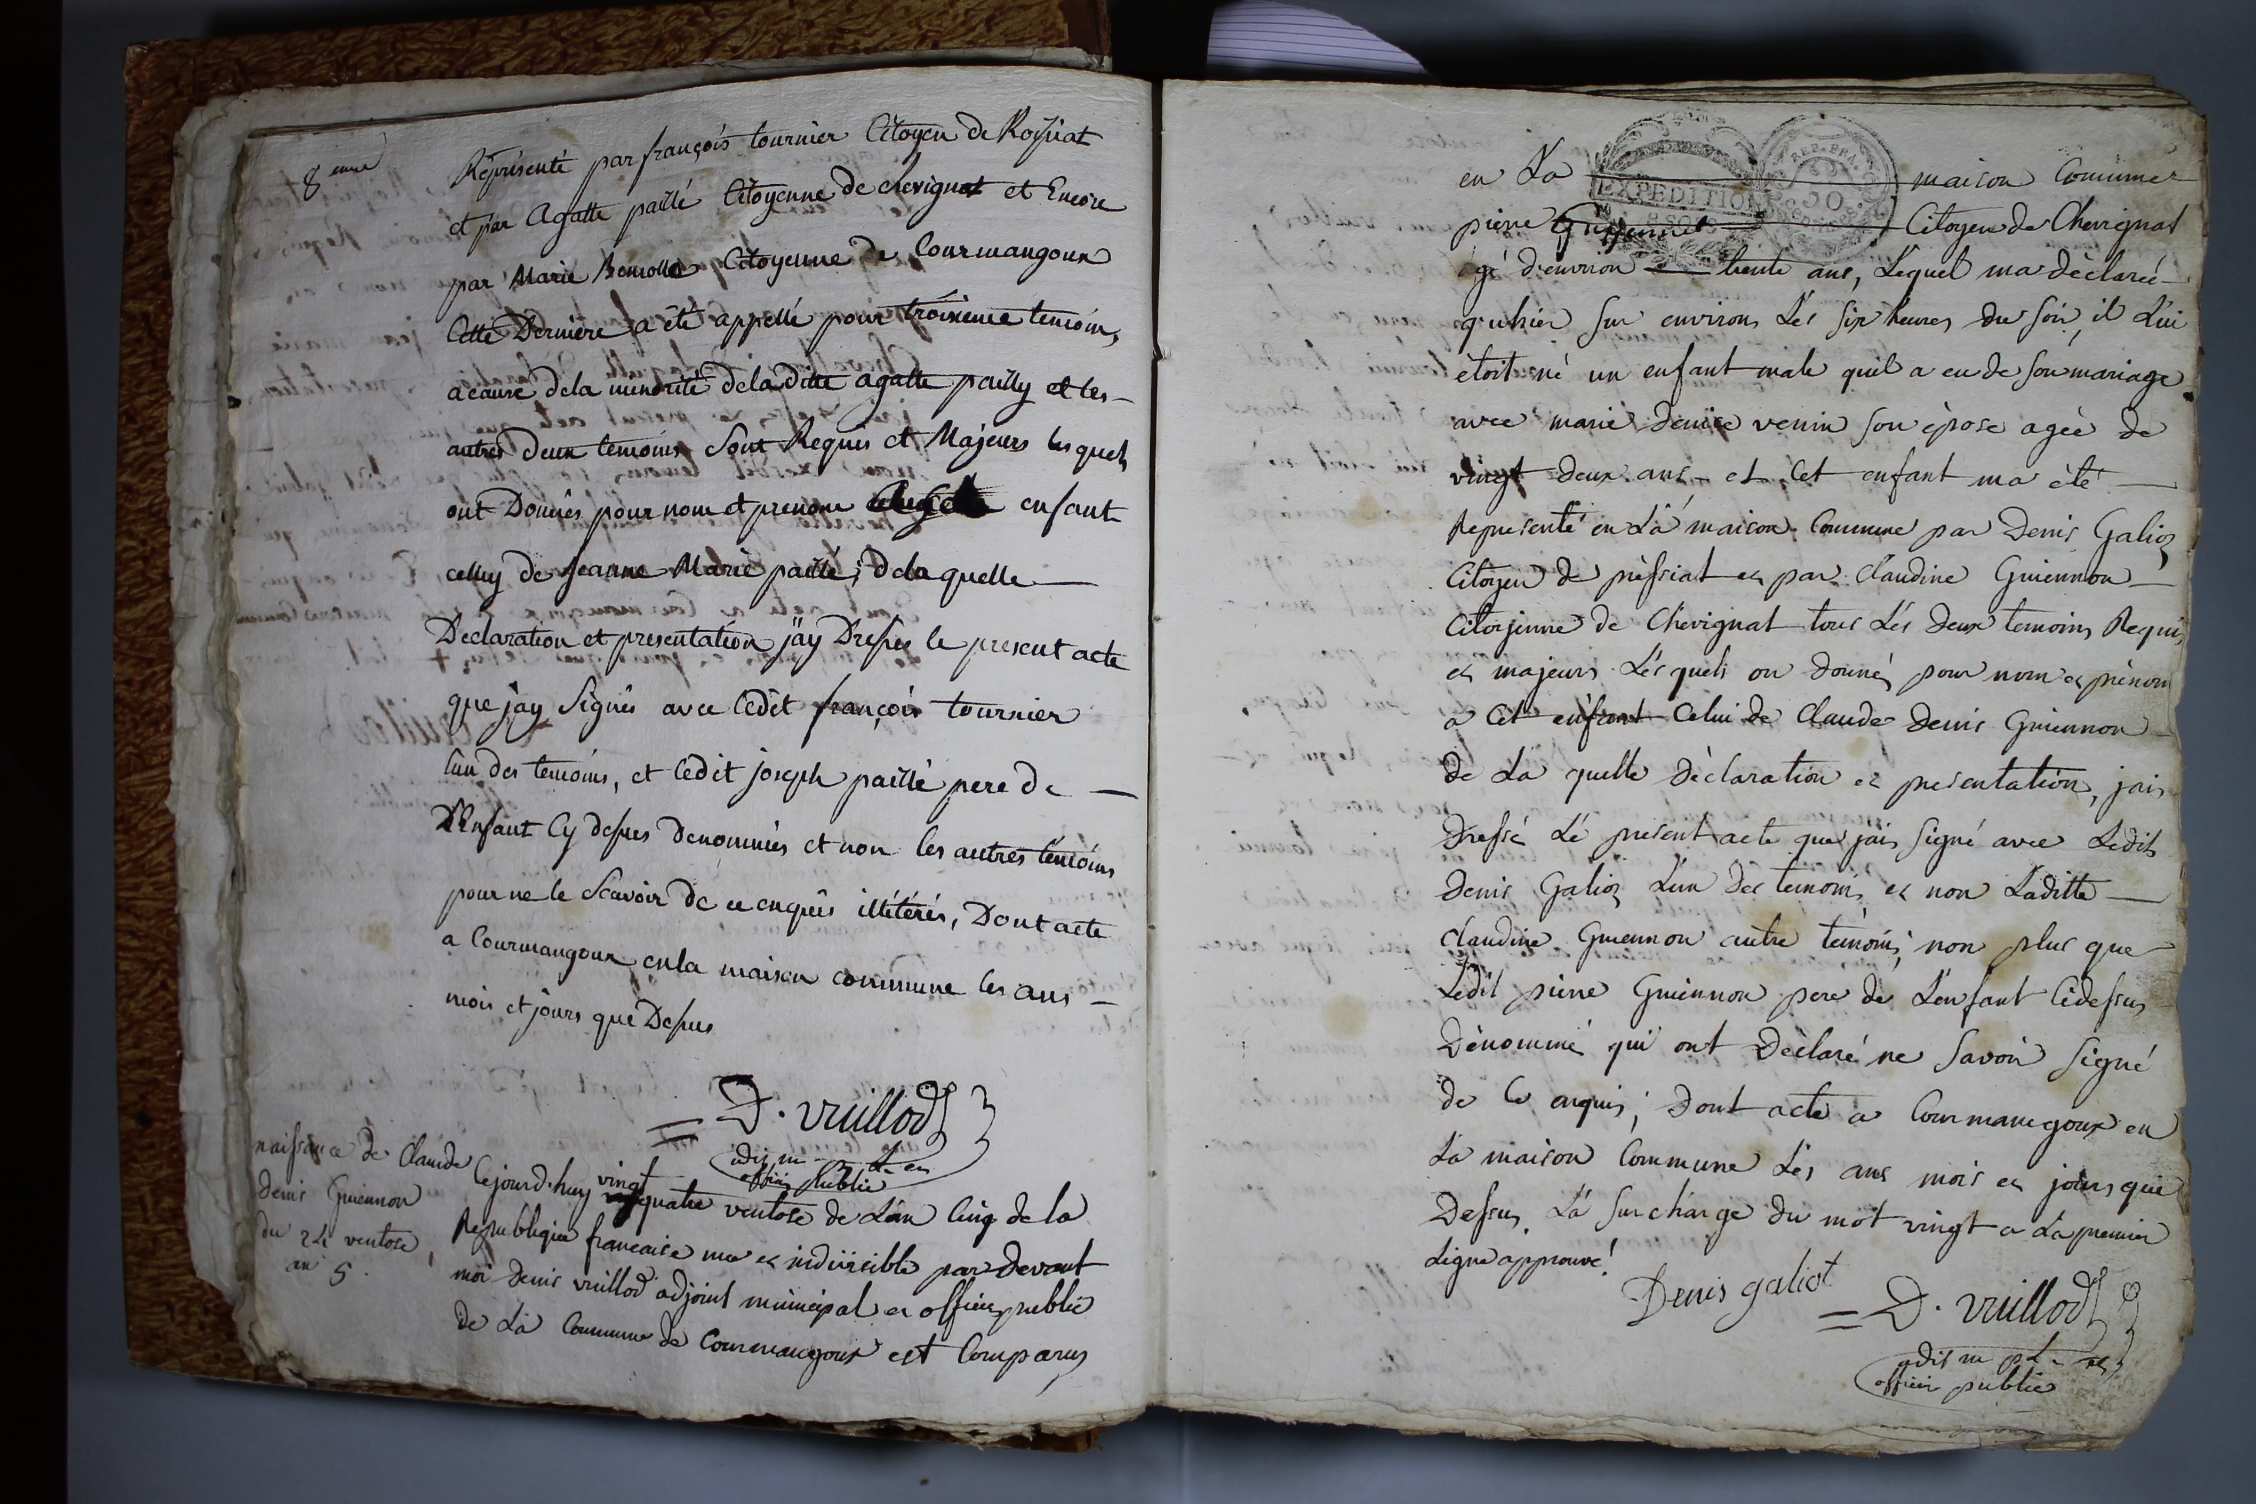 8 eme
Répresenté par françois tournier Citoyen de Rossiat
et par Agatte paillé Citoyenne de chevignat et Encore
par Marie Citoyenne de Courmangoux
Cette Derniere a été appellé pour troisieme temoin,
a cause dela minorité deladitte agatte pailly et les
autres deux temoins sont Requis et Majeurs lesquels
ont Donnés pour nom et prenom enfant
celluy de Jeanne Marie paillé, delaquelle
Declaration et presentation j'ay Dressé le present acte
que j'ay signé avec ledit françois tournier
l'un des temoins, et ledit joseph paillé pere de
L'Enfant Cy dessus denommés et non les autres temoins
pour ne le Scavoir de ce enquis illétérés, Dont acte
a Courmangoux en la maison commune les ans
mois et jours que Dessus
= D. vuillod
adj m
officier public
naissance de Claude
denis Guiennon
du 24 ventose
an 5.
Cejourd'huy vingt
quatre ventose de L'an Cinq de la
Republique francaise une et indivisible par devant
moi denis vuillod adjoint municipal et officier public
de La Commune de Courmangoux est Comparus
EXPEDITION
REP. FRA.
en La maison Commune
pierre Citoyen de Chevignat
agé d'environ trente ans, Lequel ma déclaré
qu'hier sur environ Les six heures du soir, il Lui
étoit né un enfant male quil a eu de son mariage
avec marie denise venin son épose agée de
vingt deux ans et Cet enfant ma été
Représenté en La maison Commune par Denis Galioz
Citoyen de préssiat et par Claudine Guiennon
Citoyenne de Chevignat tous Les deux temoins Requis
et majeurs Lésquels on donnés pour nom et prénom
a Cet enfant Celui de Claude denis Guiennon
de La quelle déclaration et presentation, jais
dressé Lé présent acte que jais signé avec Ledit
denis Galioz L'un des temoins et non Laditte
Claudine Guiennon autre témoins, non plus que
Ledit pierre Guiennon pere de L'enfant Cidessus
Dénommé qui ont déclaré ne savoir signé
de Ce enquis, dont acte a Courmangoux en
La maison Commune Les ans mois et jours que
Dessus La surcharge du mot vingt a La premier
Ligne approuvé
Denis galiot
= D. vuillod
adj m
officier public